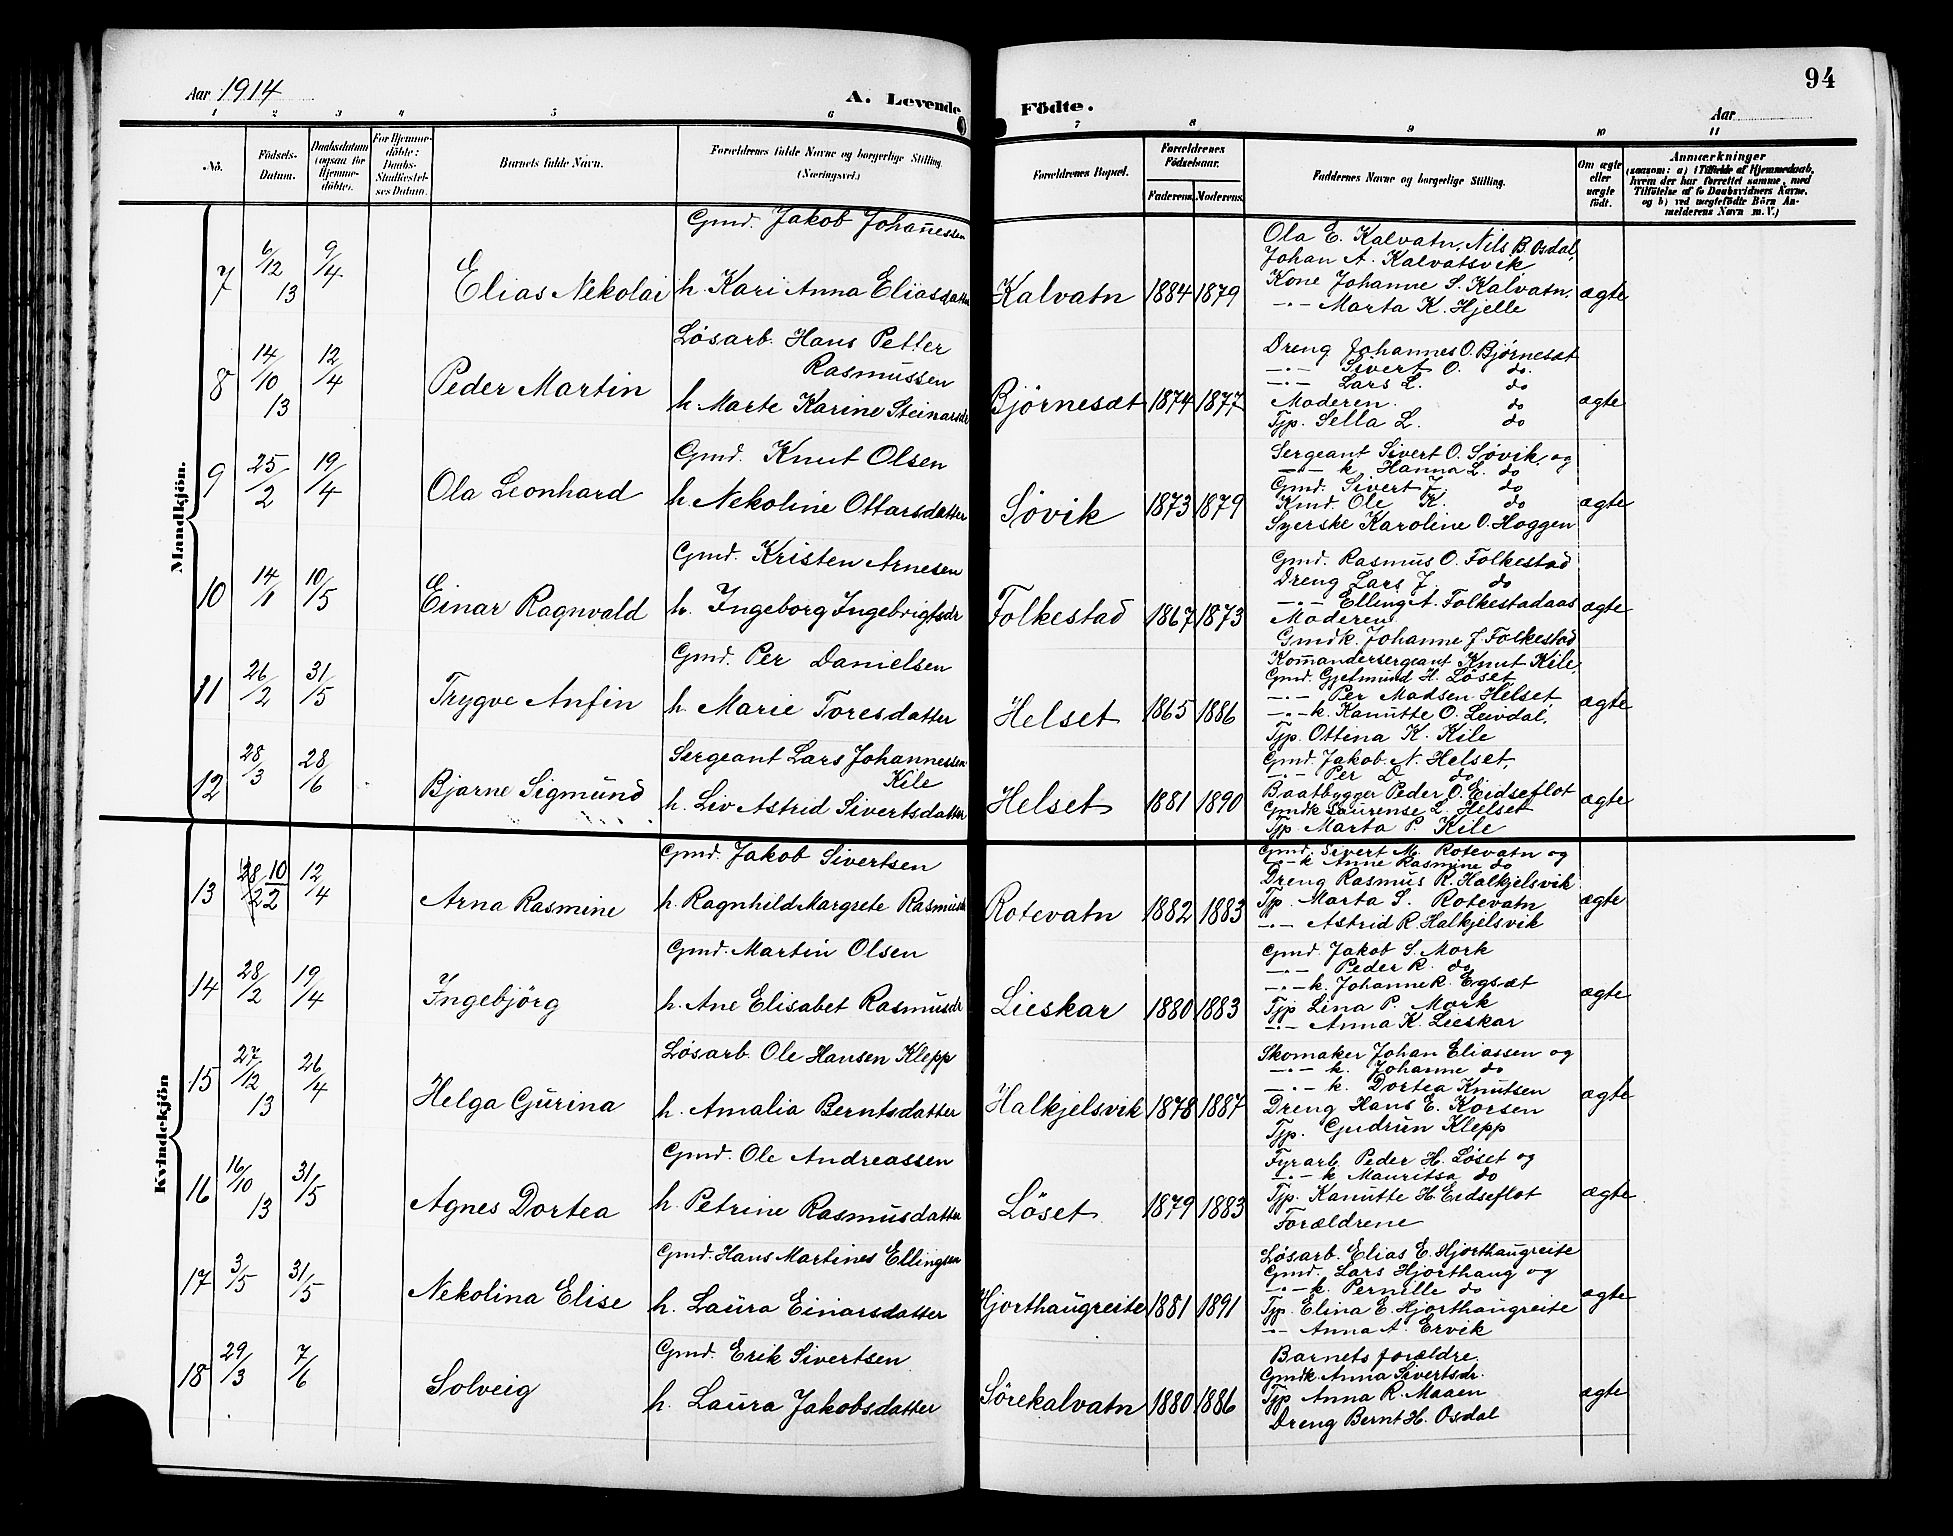 Aar 1914
A. Levende Födte.
94
Aar
1 2 3 4 5 6 7 8 9 10 11
No.
Födsels-Datum.
Daabsdatum (ogsaa for Hjemmedöbte).
For Hjemmedöbte: Daabs-Stadfæstelses Datum.
Barnets fulde Navn.
Forældrenes fulde Navne og borgerlige Stilling. (Næringsvei.)
Forældrenes Bopæl.
Forældrenes Födselsaar.
Faderens. Moderens.
Faddernes Navne og borgerlige Stilling.
Om ægte eller uægte födt.
Anmærkninger
(saasom: a) i Tilfælde af Hjemmedaab,
hvem der har forrettet samme, med
Tilföielse af to Daabsvidners Navne,
og b) ved uægtefödte Börn An-
melderens Navn m. V.)
Mandkjön.
7 6/12 13 9/4 Elias Nekolai
Gmd. Jakob Johannessen
h. Kari Anna Eliasdatter
Kalvatn 1884 1879
Ola E. Kalvatn, Nils B. Osdal,
Johan A. Kalvatsvik
Kone Johanne S. Kalvatn,
-"- Marta K. Hjelle
ægte
8 14/10 13 12/4 Peder Martin
Løsarb. Hans Petter
Rasmussen
h. Marte Karine Steinarsdr
Bjørnesæt 1874 1877
Dreng Johannes O. Bjørnesæt
-"- Sivert O. do.
-"- Lars L. do
Moderen. do
Tjp. Sella L. do
ægte
9 25/2 19/4 Ola Leonhard
Gmd. Knut Olsen
h. Nekoline Ottarsdatter
Søvik 1873 1879
Sergeant Sivert O. Søvik, og
-"- k. Hanna L. do
Gmd. Sivert J. do
Kmd. Ole K. do
Syerske Karoline O. Hoggen
ægte
10 14/1 10/5 Einar Ragnvald
Gmd. Kristen Arnesen
h. Ingeborg Ingebrigtsdr
Folkestad 1867 1873
Gmd. Rasmus O. Folkestad
Dreng Lars J. do
-"- Elling A. Folkestadaas
Moderen
Gmdk. Johanne J. Folkestad
ægte
11 26/2 31/5 Trygve Anfin
Gmd. Per Danielsen
h. Marie Toresdatter
Helset 1865 1886
Kommandersergeant Knut Kile,
Gmd. Gjetmund H. Løset,
-"- Per Madsen Helset,
-"- k. Kanutte O. Leivdal,
Tjp. Ottina K. Kile
ægte
12 28/3 28/6 Bjarne Sigmund
Sergeant Lars Johannessen
Kile
h. Liv Astrid Sivertsdatter
Helset 1881 1890
Gmd. Jakob N. Helset,
-"- Per D. do
Baatbygger Peder O. Eidseflot
Gmdk Laurense L. Helset
Tjp. Marta P. Kile
ægte
Kvindekjön
13 10/2 12/4 Arna Rasmine
Gmd. Jakob Sivertsen
h. Ragnhild Margrete Rasmusdr
Rotevatn 1882 1883
Gmd. Sivert M. Rotevatn og
-"- k Anne Rasmine do
Dreng Rasmus R. Halkjelsvik
Tjp. Marta S. Rotevatn
-"- Astrid R. Halkjelsvik
ægte
14 28/2 19/4 Ingebjörg
Gmd. Martin Olsen
h. Ane Elisabet Rasmusdr
Lieskar 1880 1883
Gmd. Jakob S. Mork
-"- Peder R. do
-"- k. Johanne R. Egsæt
Tjp Lina P. Mork
-"- Anna K. Lieskar
ægte
15 27/12 13 26/4 Helga Gurina
Løsarb. Ole Hansen Klepp
h. Amalia Berntsdatter
Halkjelsvik 1878 1887
Skomaker Johan Eliassen og
-"- k. Johanne do
-"- k. Dortea Knutsen
Dreng Hans E. Korsen
Tjp. Gudrun Klepp
ægte
16 16/10 13 31/5 Agnes Dortea
Gmd. Ole Andreassen
h. Petrine Rasmusdatter
Løset 1879 1883
Fyrarb. Peder H. Løset og
-"- k Mauritsa do
Tjp. Kanutte H. Eidseflot
Forældrene
ægte
17 3/5 31/5 Nekolina Elise
Gmd. Hans Martines Ellingsen
h. Laura Einarsdatter
Hjorthaugreite 1881 1891
Løsarb. Elias E. Hjorthaugreite
Gmd. Lars Hjorthaug og
-"- k. Pernille do
Tjp. Elina E. Hjorthaugreite
-"- Anna A. Ervik
ægte
18 29/3 7/6 Solveig
Gmd. Erik Sivertsen
h. Laura Jakobsdatter
Sörekalvatn 1880 1886
Barnets forældre.
Gmdk. Anna Sivertsdr.
Tjp Anna R. Maaen
Dreng Bernt H. Osdal
ægte